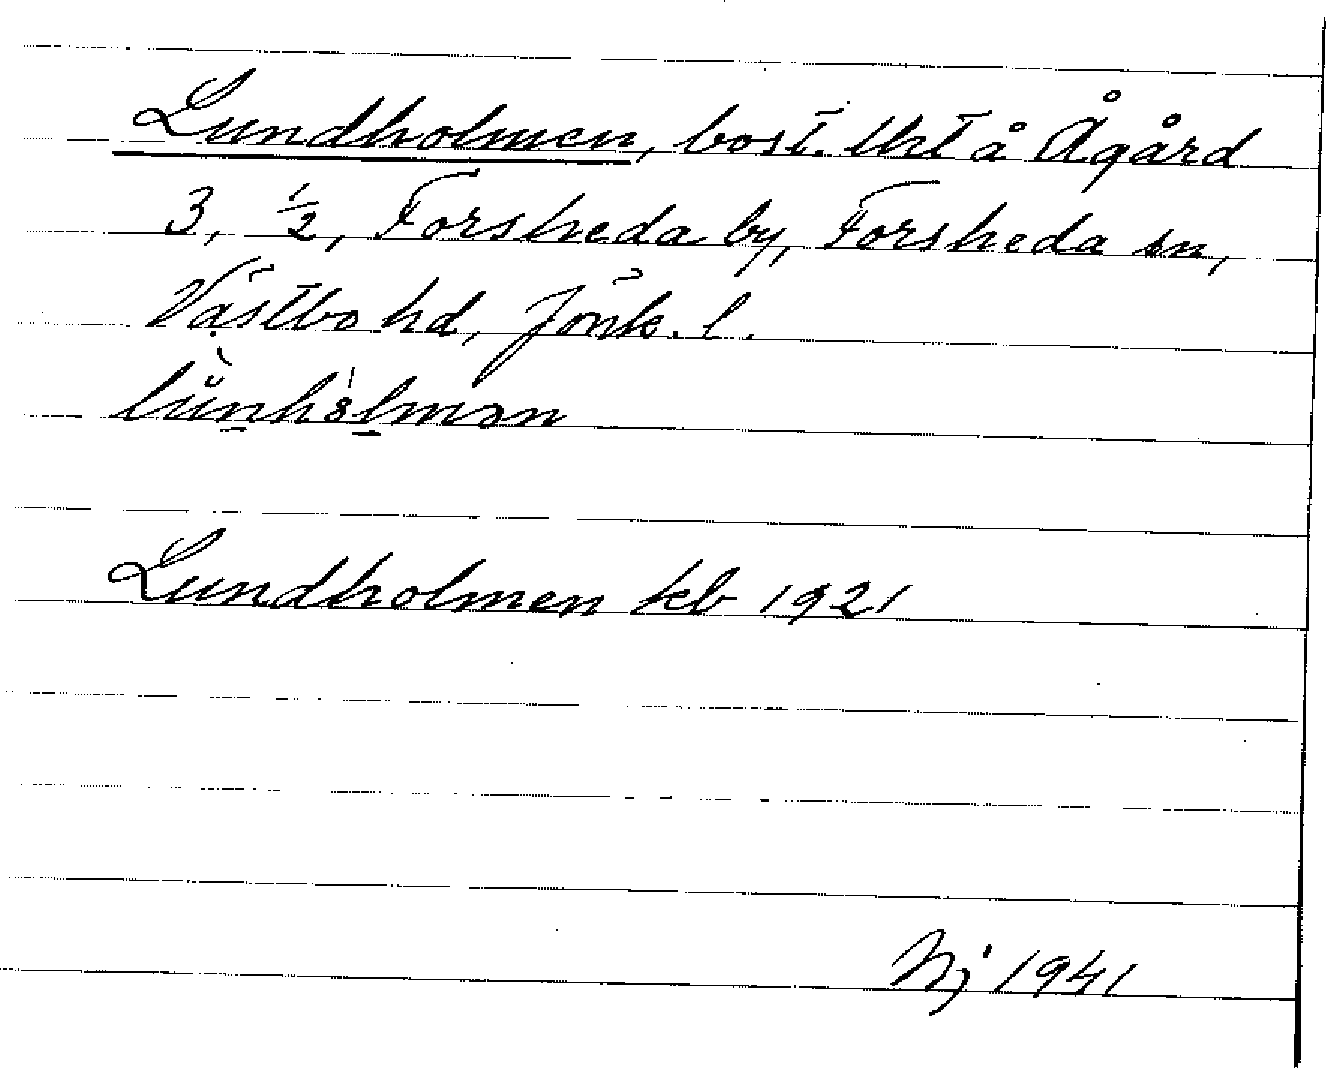 Lundholmen, bost. lht å Ågård
3, ½, Forsheda by, Forsheda sn,
Västbo hd, Jönk. l.
Lundholmen kb 1921
Nj 1941